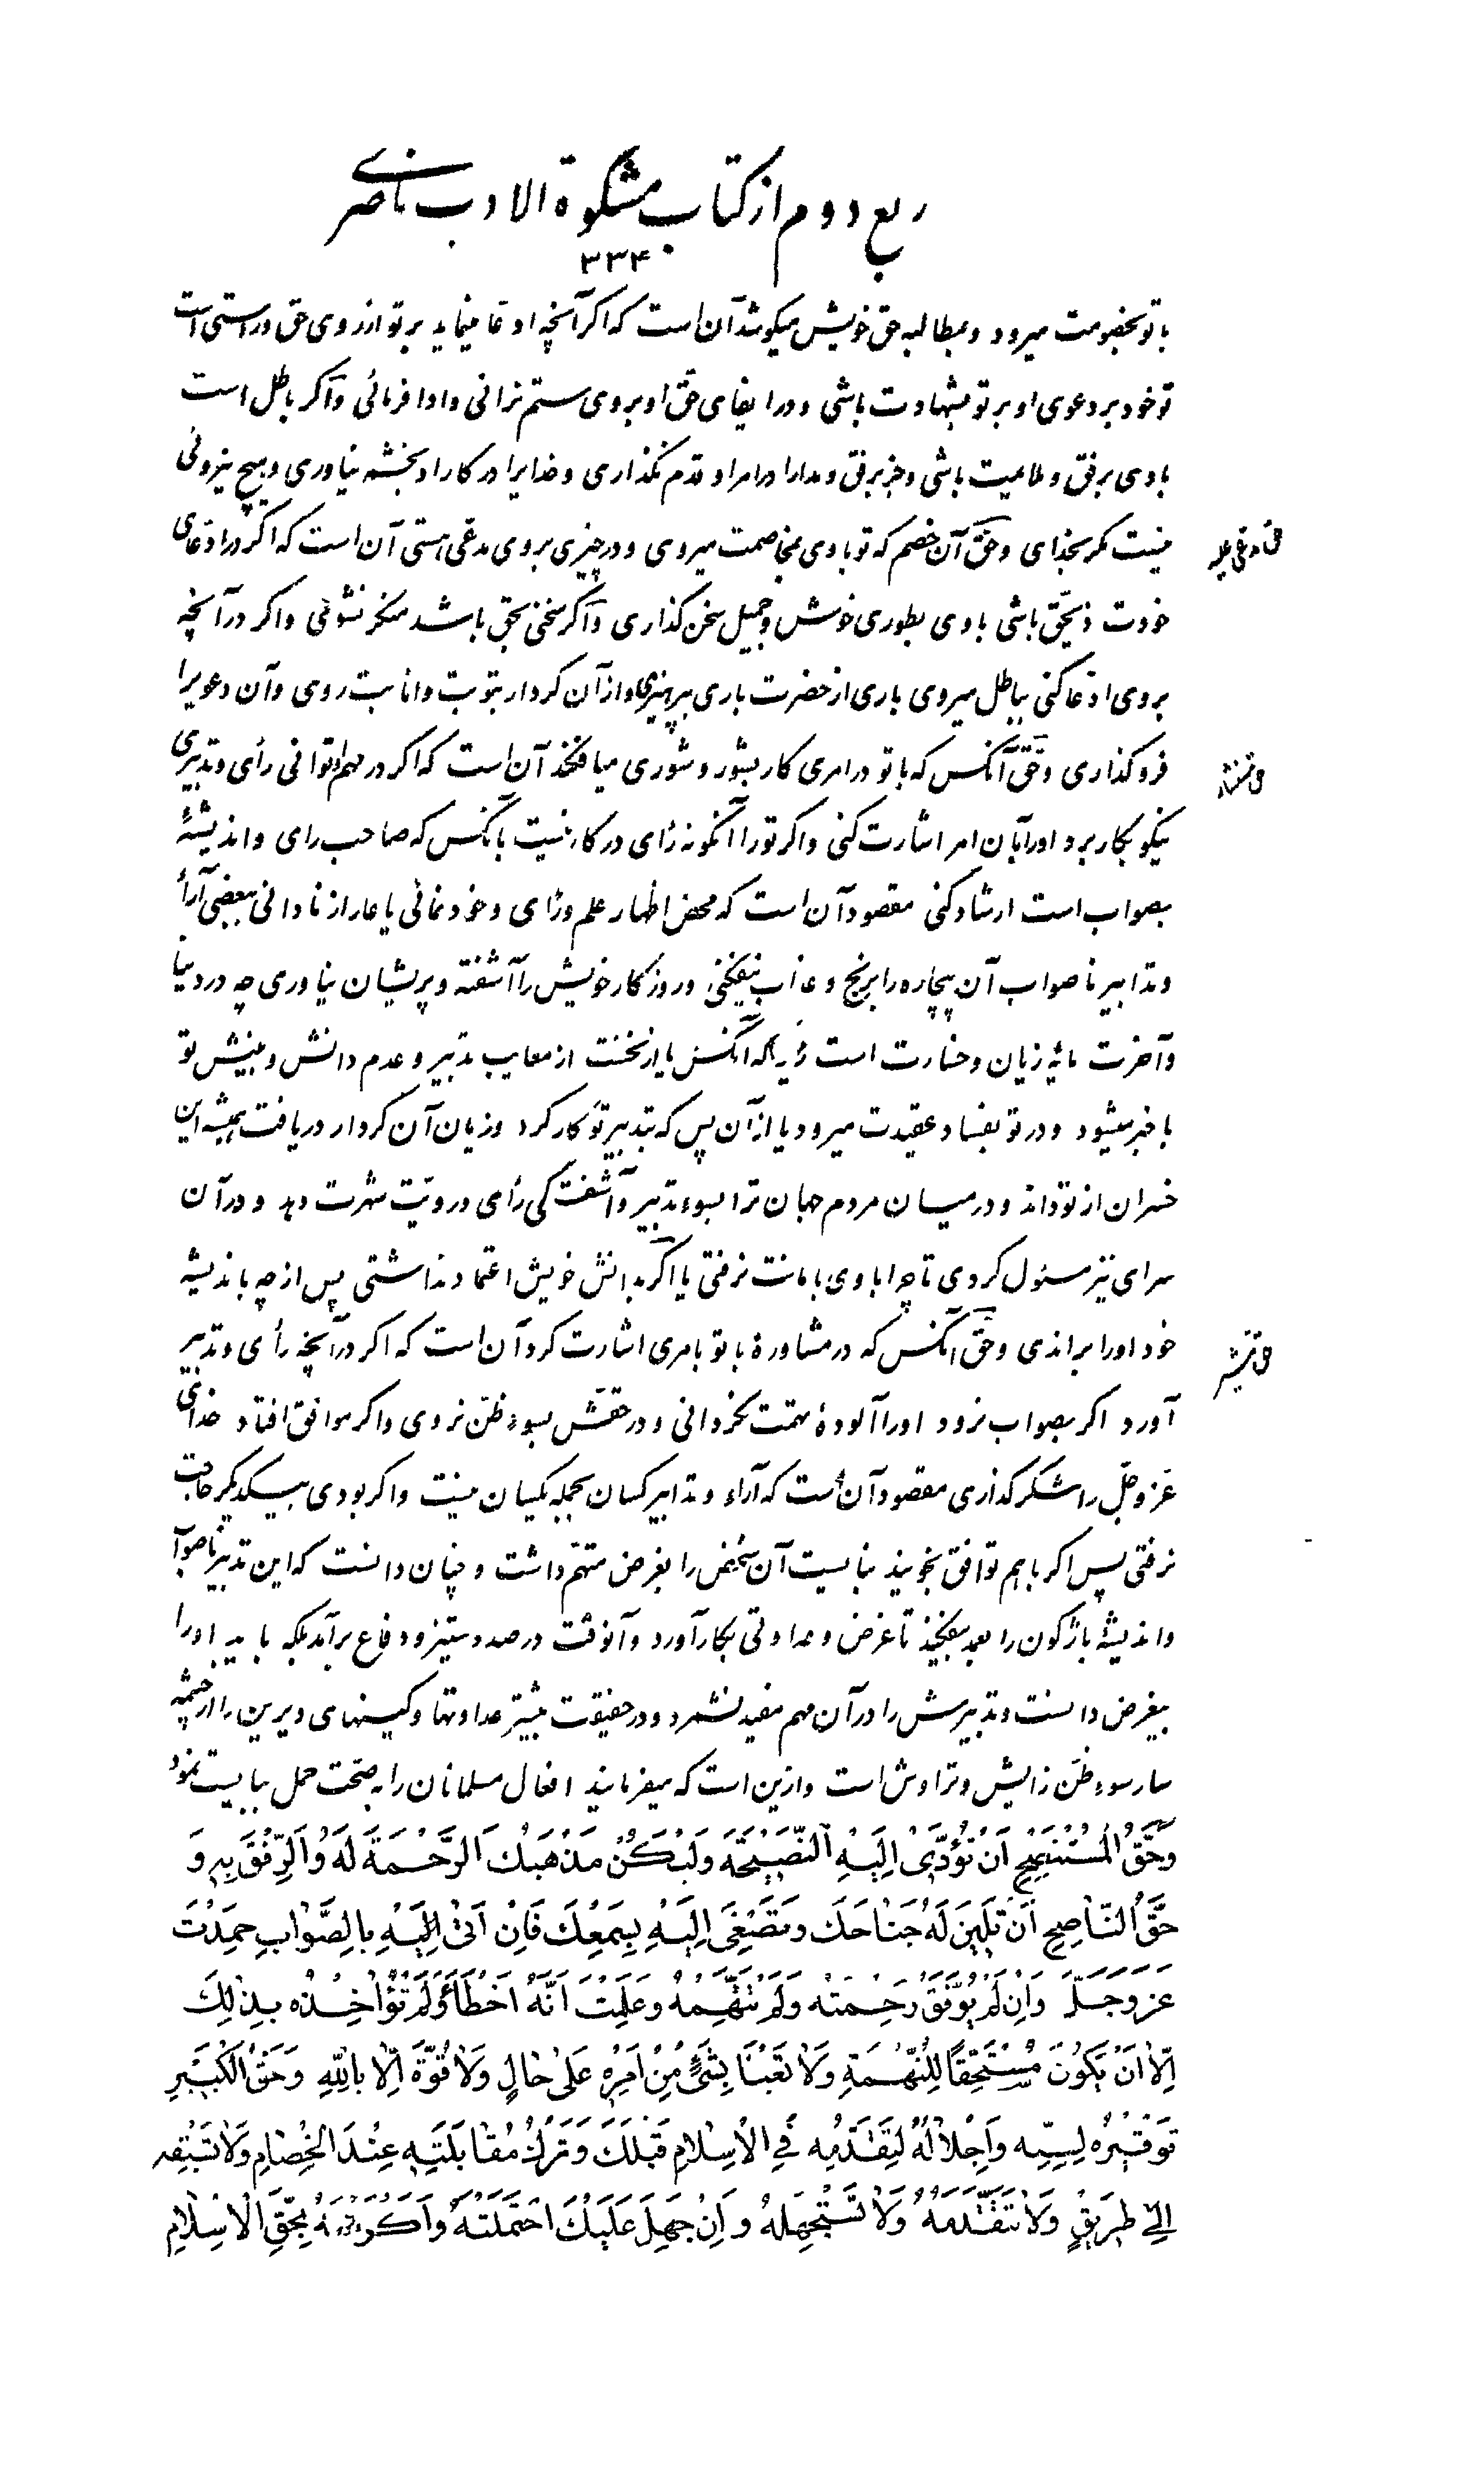 ربع دوم از کتاب مشکوة الادب ناصری
۳۳۴
با تو بخصومت میرود و بمطالبه حق خویش میکوشد آن است که اگر آنچه ادعا مینماید بر تو از روی حق و راستی است
تو خود بر دعوی او بر تو بشهادت باشی و در ایفای حق او بروی ستم نرانی و ادا فرمائی و اگر باطل است
با وی برفق و ملاعبت باشی و جز برفق و مدارا در امر او قدم نگذاری و خدایرا در کار او بخشم نیاوری و هیچ نیروئی
نیست مگر بخدای و حق آن خصم که تو با وی بمخاصمت میروی و در چیزی بر وی مدعی هستی آن است که اگر در ادعای
حق مدعی علیه
خودت ذیحق باشی با وی بطوری خوش و جمیل سخن گذاری و اگر سخن بحق باشد منکر نشوی و اگر در آنچه
بر وی ادعا کنی بباطل میروی باری از حضرت باری بپرهیزی و از آن کردار بتوبت و انابت روی و آن دعویرا
فرو گذاری و حق آنکس که با تو در امری کار بشور و شوری میافکند آن است که اگر در مهم او توانی رأی و تدبیری
حق مستشیر
نیکو بکار برد او را بآن امر اشارت کنی و اگر تو را آنگونه رأی در کار نیست بآنکس که صاحب رای و اندیشهٔ
بصواب است ارشاد کنی مقصود آن است که محض اظهار علم و رأی و خود نمائی یا عار از نادانی ببعضی آراء
و تدابیر ناصواب آن بیچاره را برنج و عذاب نیفکنی و روزکار خویش را آشفته و پریشان نیاوری چه در دنیا
و آخرت مایه زیان و خسارت است زیرا که آنکس یا از نخست از معایب تدبیر و عدم دانش و بینش تو
با خبر میشود و در تو بفساد عقیدت میرود یا از آن پس که بتدبیر تو کار کرد و زیان آن کردار دریافت همیشه این
خسران از تو داند و در میان مردم جهان ترا بسوء تدبیر و آشفتگی رأی و رویت شهرت دهد و در آن
سرای نیز مسئول گردی تا چرا با وی بامانت نرفتی یا اگر بدانش خویش اعتماد نداشتی پس از چه باندیشه
خود او را براندی و حق آنکس که در مشاورهٔ با تو بامری اشارت کرد آن است که اگر در آنچه رأی و تدبیر
حق مشیر
آورد اگر بصواب نرود او را آلودهٔ تهمت نگردانی و در حقش بسوء ظن نروی و اگر موافق افتاد خدای
عز و جل را شکر گذاری مقصود آن است که آراء و تدابیر کسان بجمله یکسان نیست و اگر بودی بیکدیگر حاجت
نرفتی پس اگر با هم توافق نجویند نبایست آن شخص را بغرض متهم داشت و چنان دانست که این تدبیر ناصواب
و اندیشهٔ باژگون را بعمد بیفکند تا غرض و عداوتی بکار آورد و آنوقت در صدد ستیز و دفاع برآمد بلکه باید او را
بیغرض دانست و تدبیرش را در آن مهم مفید نشمرد و در حقیقت بیشتر عداوتها و کینهای دیرین را از چشمه
سار سوء ظن زایش و تراوش است و ازین است که میفرمایند افعال مسلمانان را به صحت حمل ببایست نمود
وَحَقُّ الْمُسْتَنْصِحِ اَنْ تُؤَدِّیَ اِلَیْهِ النَّصِیْحَةَ وَلْیَکُنْ مَذْهَبُكَ الرَّحْمَةَ لَهُ وَالرِّفْقَ بِهِ وَ
حَقُّ النّاصِحِ اَنْ تُلِیْنَ لَهُ جَناحَكَ وَتَصْغِیَ اِلَیْهِ بِسَمْعِكَ فَاِنْ اَتیٰ اِلَیْهِ بِالصَّوابِ حَمِدْتَ
عَزَّ وَجَلَّ وَاِنْ لَمْ یُوَفَّقْ رَحِمْتَهُ وَلَمْ تَتَّهِمْهُ وَعَلِمْتَ اَنَّهُ اَخْطَأَ وَلَمْ تُؤاخِذْهُ بِذٰلِكَ
اِلّا اَنْ یَکُوْنَ مُسْتَحِقّاً لِلتُّهَمَةِ وَلا تَعْبَأْ بِشَیْءٍ مِنْ اَمْرِهِ عَلیٰ حالٍ وَلا قُوَّةَ اِلّا بِاللّٰهِ وَحَقُّ الْکَبِیْرِ
تَوْقِیْرُهُ لِسِنِّهِ وَاِجْلالُهُ لِتَقَدُّمِهِ فِی الْاِسْلامِ قَبْلَكَ وَتَرْكُ مُقابَلَتِهِ عِنْدَ الْخِصامِ وَلا تَسْبِقْهُ
اِلیٰ طَرِیْقٍ وَلا تَتَقَدَّمْهُ وَلا تَسْتَجْهِلْهُ وَاِنْ جَهِلَ عَلَیْكَ احْتَمَلْتَهُ وَاَکْرَمْتَهُ بِحَقِّ الْاِسْلامِ